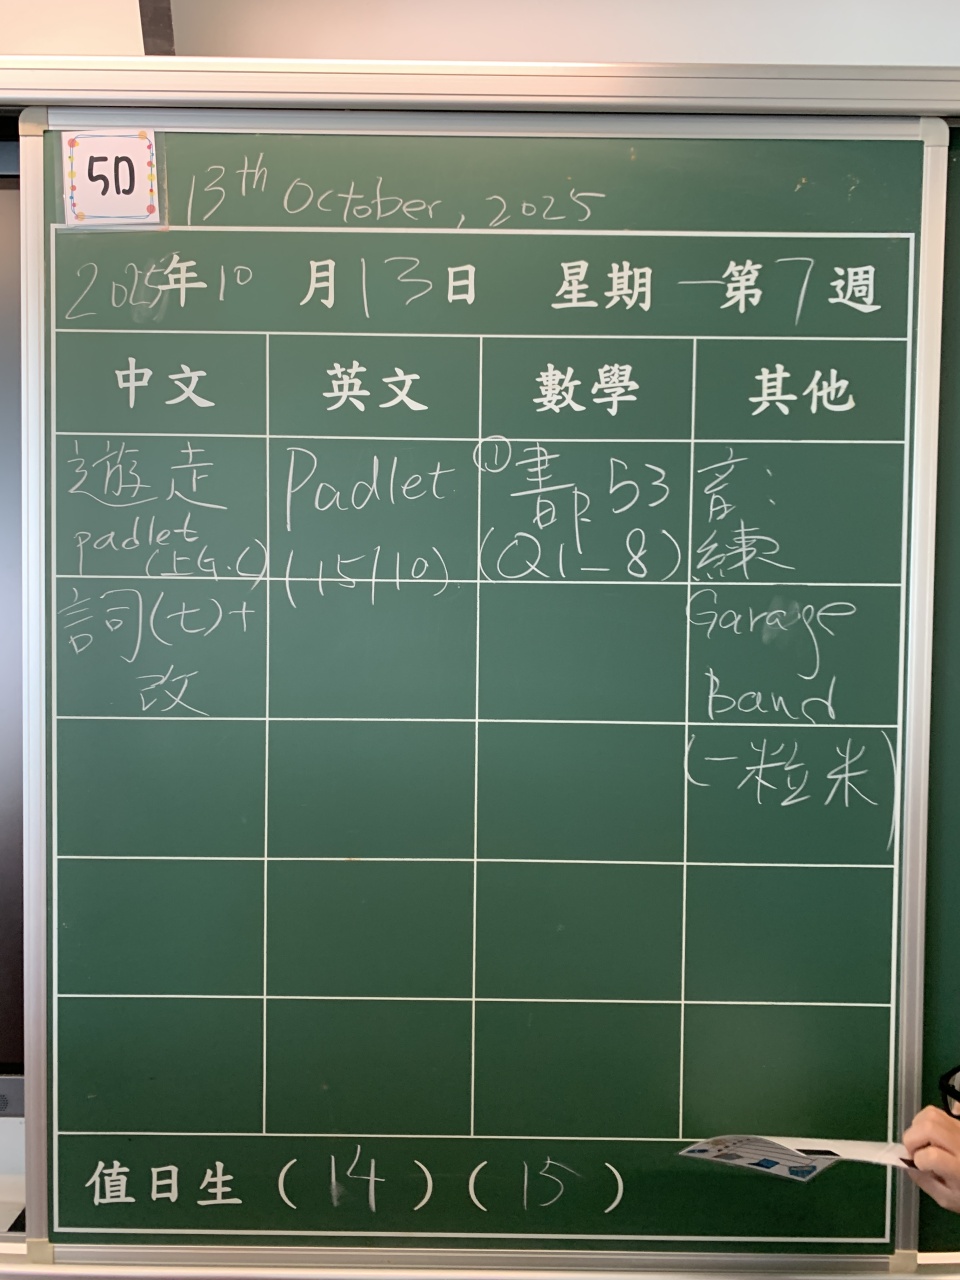 5D
13th October, 2025
2025年10月13日 星期一 第7週
中文 英文 數學 其他
遊走
padlet
(上G.C)
詞(七)+
改
Padlet
(15/10)
① 書P. 53
(Q1-8)
音:
練
Garage
Band
(一粒米)
值日生 (14) (15)